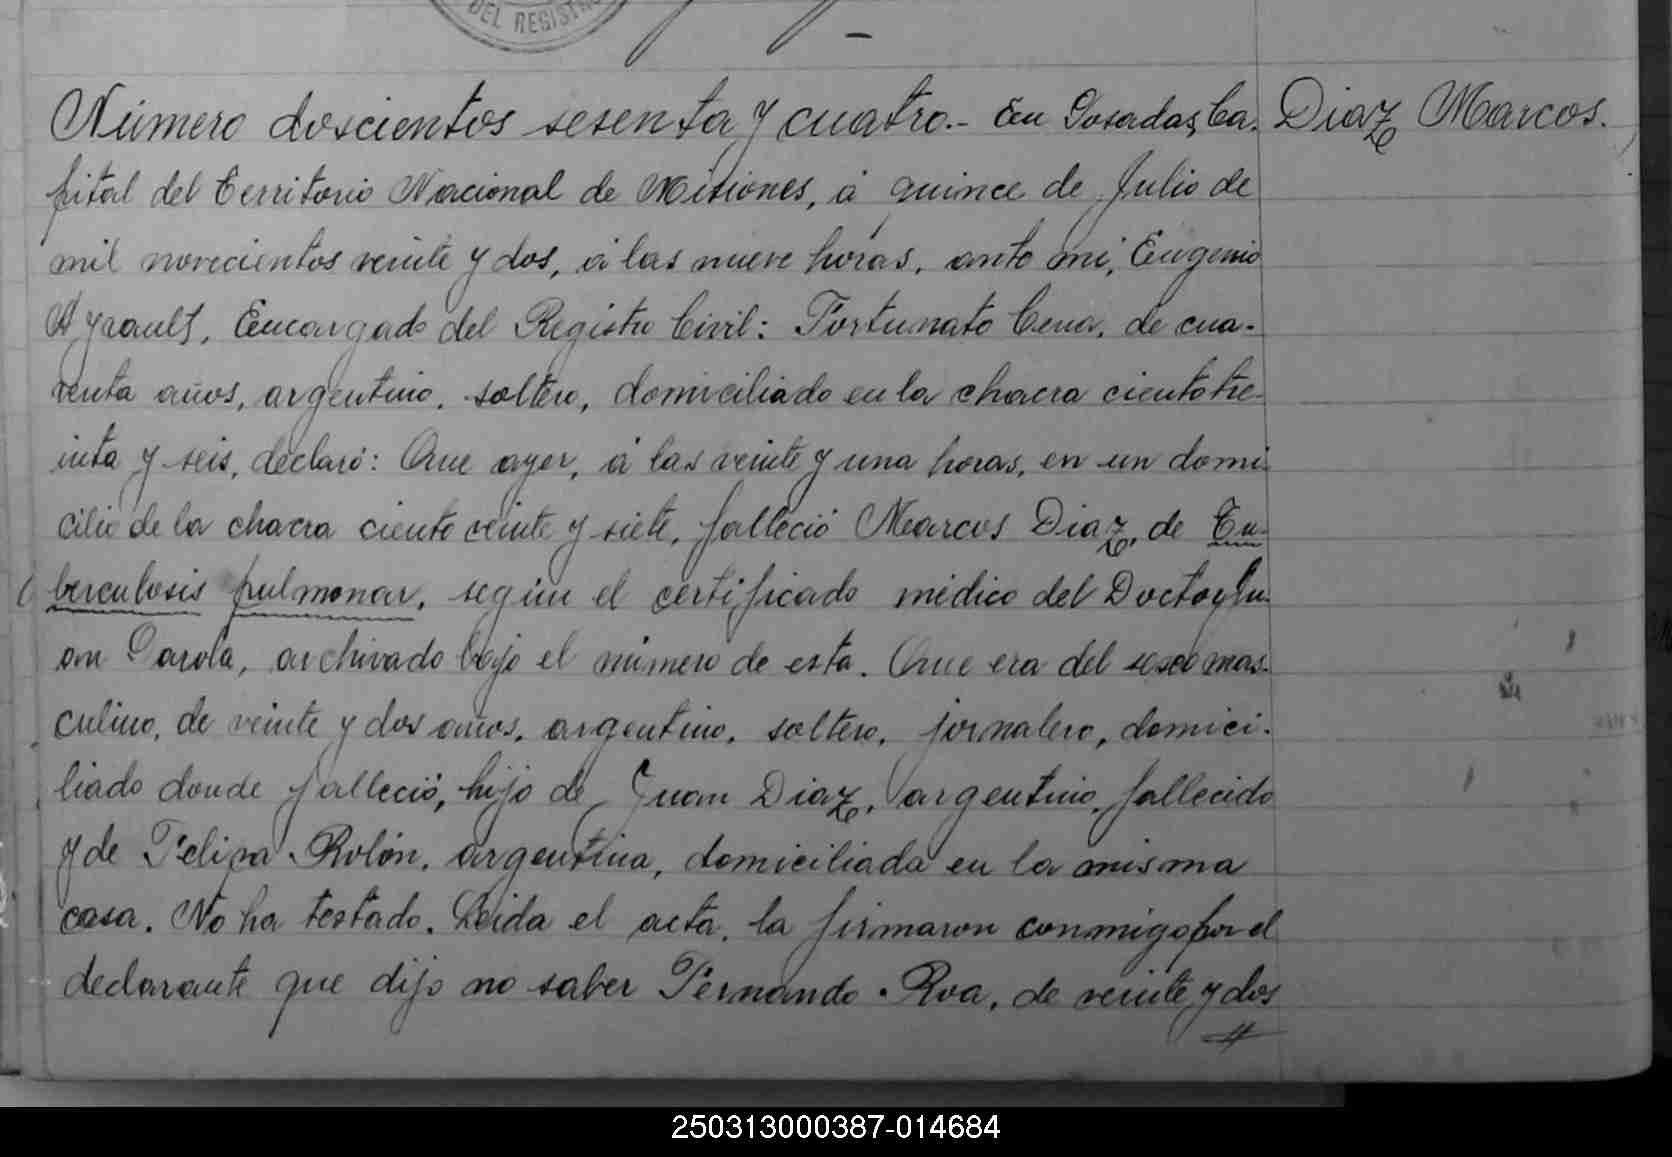 DEL REGISTRO
Número doscientos sesenta y cuatro.- En Posadas, Ca- Diaz Marcos.
pital del Territorio Nacional de Misiones, á quince de Julio de
mil novecientos veinte y dos, á las nueve horas, ante mi, Eugenio
Ayrault, Encargado del Registro Civil: Fortunato Cena, de cua-
renta años, argentino, soltero, domiciliado en la chacra ciento tre-
inta y seis, declaró: Que ayer, á las veinte y una horas, en un domi-
cilio de la chacra ciento veinte y siete, falleció Marcos Diaz, de Tu-
berculosis pulmonar, segun el certificado médico del Doctor Ju-
an Parola, archivado bajo el número de esta. Que era del sexo mas-
culino, de veinte y dos años, argentino, soltero, jornalero, domici-
liado donde falleció, hijo de Juan Diaz, argentino, fallecido
y de Felipa Rolón, argentina, domiciliada en la misma
casa. No ha testado. Leida el acta, la firmaron conmigo por el
declarante que dijo no saber Fernando Roa, de veinte y dos
250313000387-014684